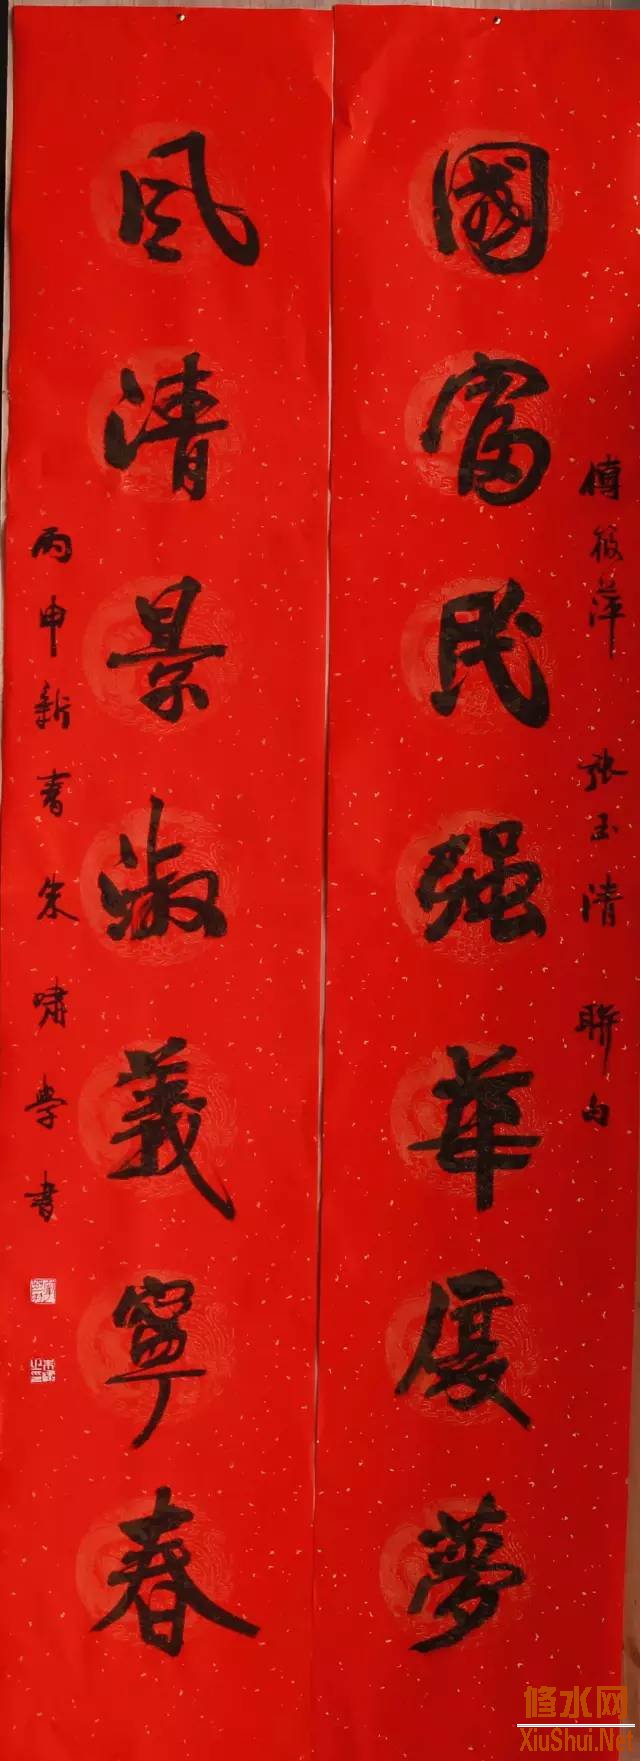 傅筱萍 張玉清 聯句
國富民强華夏夢
風清景淑義寧春
丙申新春朱嘯學書
修水网
XiuShui.Net